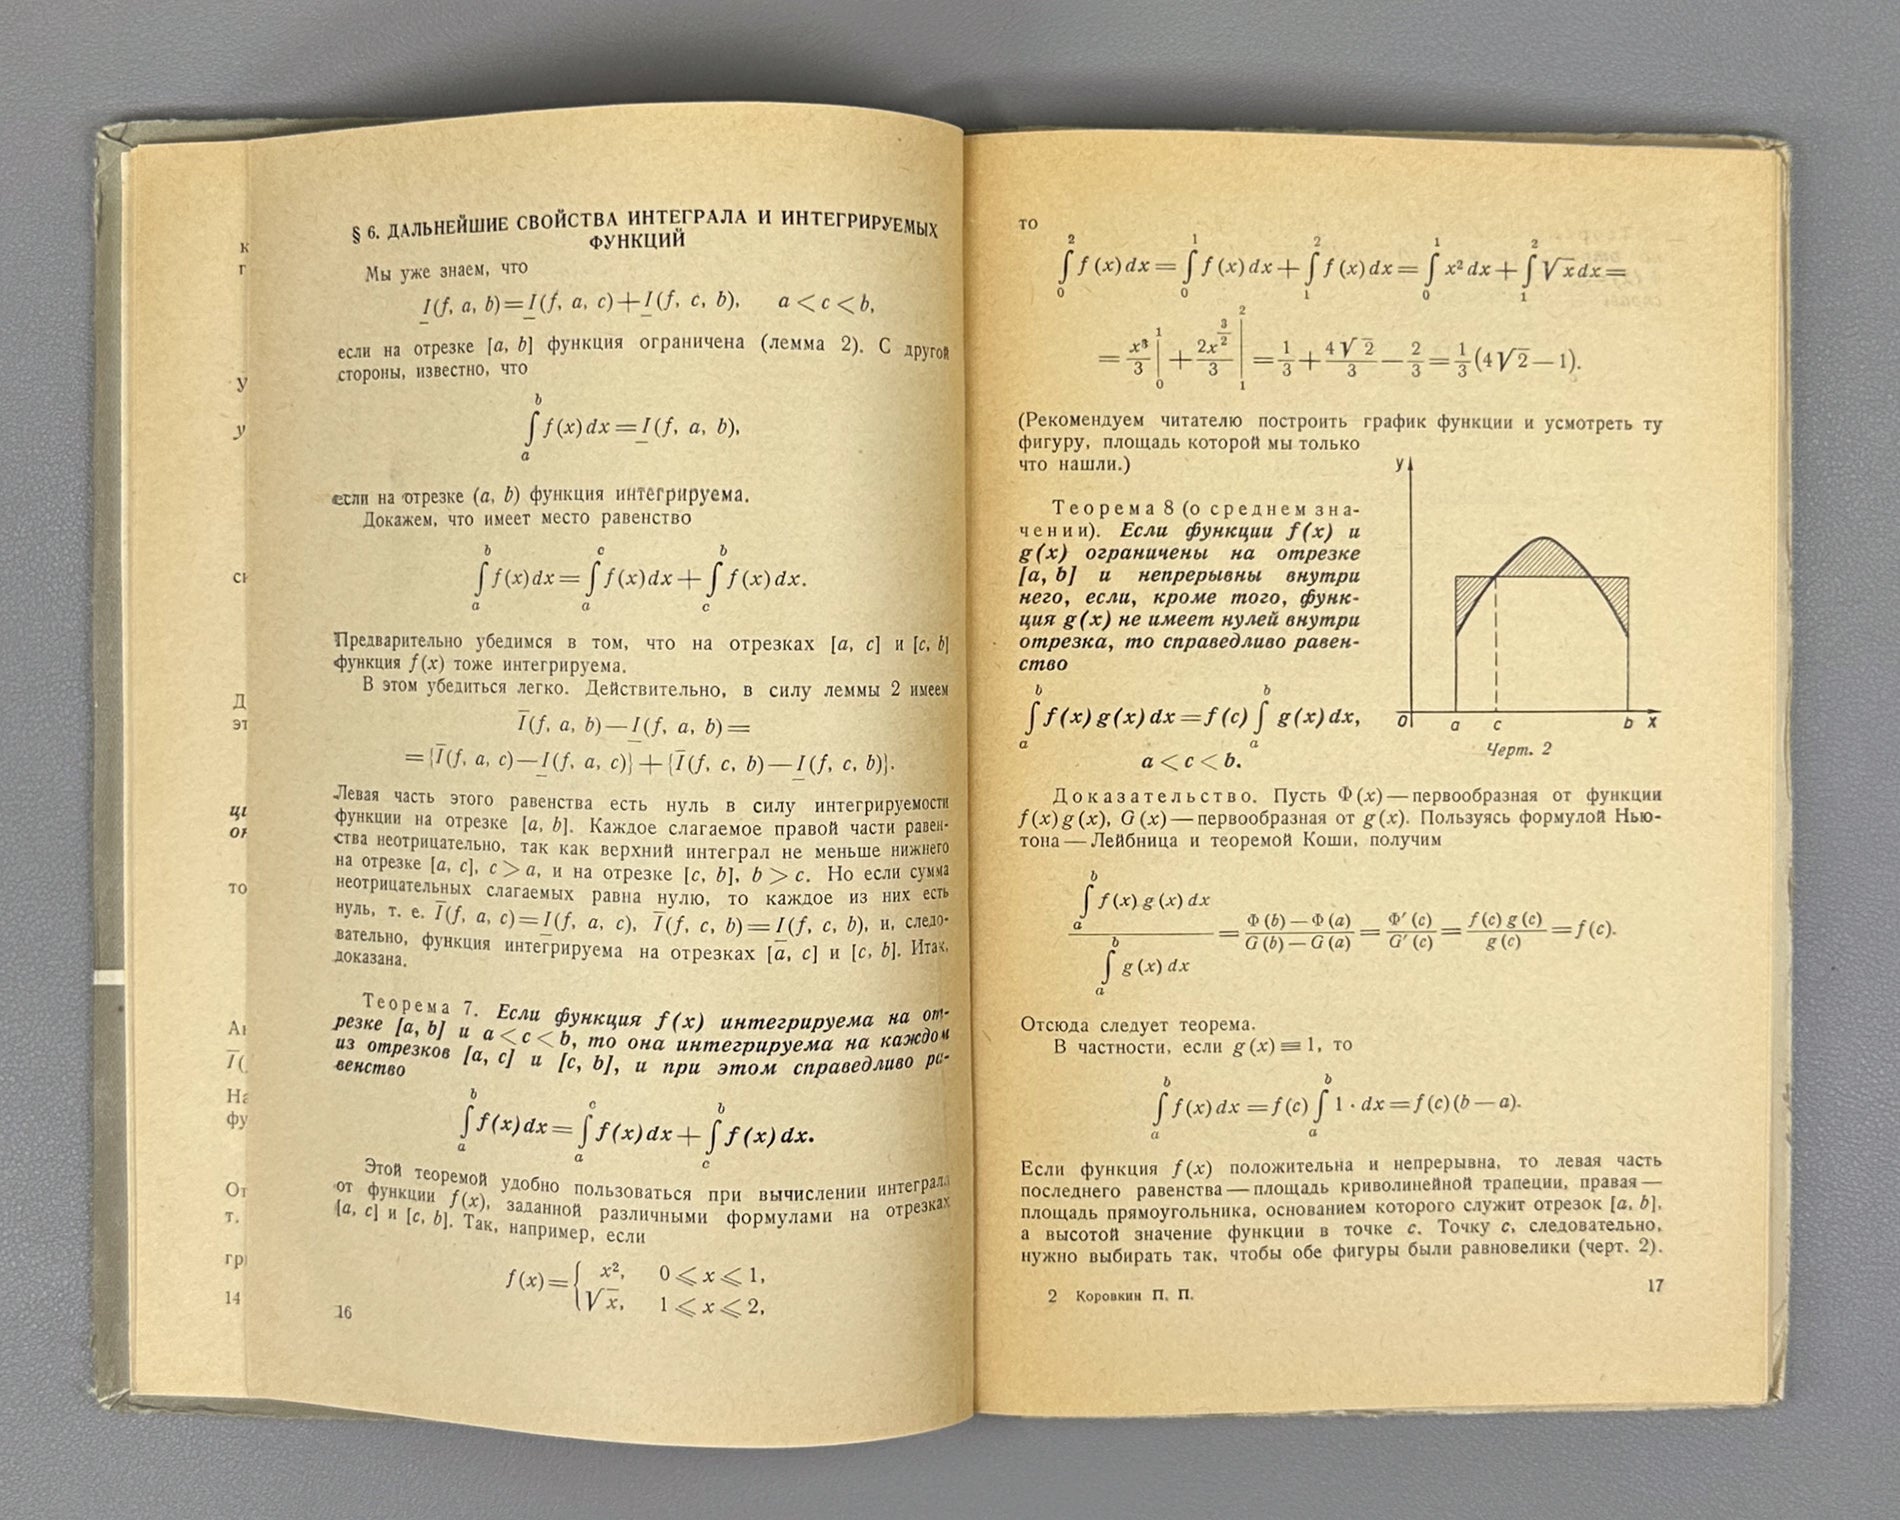 к
г
у
у
Д
эт
то
От
т.
14
§ 6. ДАЛЬНЕЙШИЕ СВОЙСТВА ИНТЕГРАЛА И ИНТЕГРИРУЕМЫХ
ФУНКЦИЙ
Мы уже знаем, что
I̲(f, a, b)=I̲(f, a, c)+I̲(f, c, b), a<c<b,
если на отрезке [a, b] функция ограничена (лемма 2). С другой
стороны, известно, что
∫_a^b f(x)dx=I̲(f, a, b),
если на отрезке (a, b) функция интегрируема.
Докажем, что имеет место равенство
∫_a^b f(x)dx=∫_a^c f(x)dx+∫_c^b f(x)dx.
Предварительно убедимся в том, что на отрезках [a, c] и [c, b]
функция f(x) тоже интегрируема.
В этом убедиться легко. Действительно, в силу леммы 2 имеем
Ī(f, a, b)—I̲(f, a, b)=
={Ī(f, a, c)—I̲(f, a, c)}+{Ī(f, c, b)—I̲(f, c, b)}.
Левая часть этого равенства есть нуль в силу интегрируемости
функции на отрезке [a, b]. Каждое слагаемое правой части равен-
ства неотрицательно, так как верхний интеграл не меньше нижнего
на отрезке [a, c], c>a, и на отрезке [c, b], b>c. Но если сумма
неотрицательных слагаемых равна нулю, то каждое из них есть
нуль, т. е. Ī(f, a, c)=I̲(f, a, c), Ī(f, c, b)=I̲(f, c, b), и, следо-
вательно, функция интегрируема на отрезках [a, c] и [c, b]. Итак,
доказана.
Теорема 7. Если функция f(x) интегрируема на от-
резке [a, b] и a<c<b, то она интегрируема на каждом
из отрезков [a, c] и [c, b], и при этом справедливо ра-
венство
∫_a^b f(x)dx=∫_a^c f(x)dx+∫_c^b f(x)dx.
Этой теоремой удобно пользоваться при вычислении интеграла
от функции f(x), заданной различными формулами на отрезках
[a, c] и [c, b]. Так, например, если
f(x)={ x², 0⩽x⩽1,
√x, 1⩽x⩽2,
16
то
∫_0^2 f(x)dx=∫_0^1 f(x)dx+∫_1^2 f(x)dx=∫_0^1 x²dx+∫_1^2 √x dx=
=x³/3|_0^1+2x^(3/2)/3|_1^2=1/3+4√2/3—2/3=1/3(4√2—1).
(Рекомендуем читателю построить график функции и усмотреть ту
фигуру, площадь которой мы только
что нашли.)
Теорема 8 (о среднем зна-
чении). Если функции f(x) и
g(x) ограничены на отрезке
[a, b] и непрерывны внутри
него, если, кроме того, функ-
ция g(x) не имеет нулей внутри
отрезка, то справедливо равен-
ство
∫_a^b f(x)g(x)dx=f(c)∫_a^b g(x)dx,
a<c<b.
y
0 a c b x
Черт. 2
Доказательство. Пусть Φ(x)—первообразная от функции
f(x)g(x), G(x)—первообразная от g(x). Пользуясь формулой Нью-
тона—Лейбница и теоремой Коши, получим
∫_a^b f(x)g(x)dx / ∫_a^b g(x)dx = (Φ(b)—Φ(a))/(G(b)—G(a)) = Φ′(c)/G′(c) = f(c)g(c)/g(c) = f(c).
Отсюда следует теорема.
В частности, если g(x)≡1, то
∫_a^b f(x)dx=f(c)∫_a^b 1·dx=f(c)(b—a).
Если функция f(x) положительна и непрерывна, то левая часть
последнего равенства—площадь криволинейной трапеции, правая—
площадь прямоугольника, основанием которого служит отрезок [a, b],
а высотой значение функции в точке c. Точку c, следовательно,
нужно выбирать так, чтобы обе фигуры были равновелики (черт. 2).
2 Коровкин П. П.
17